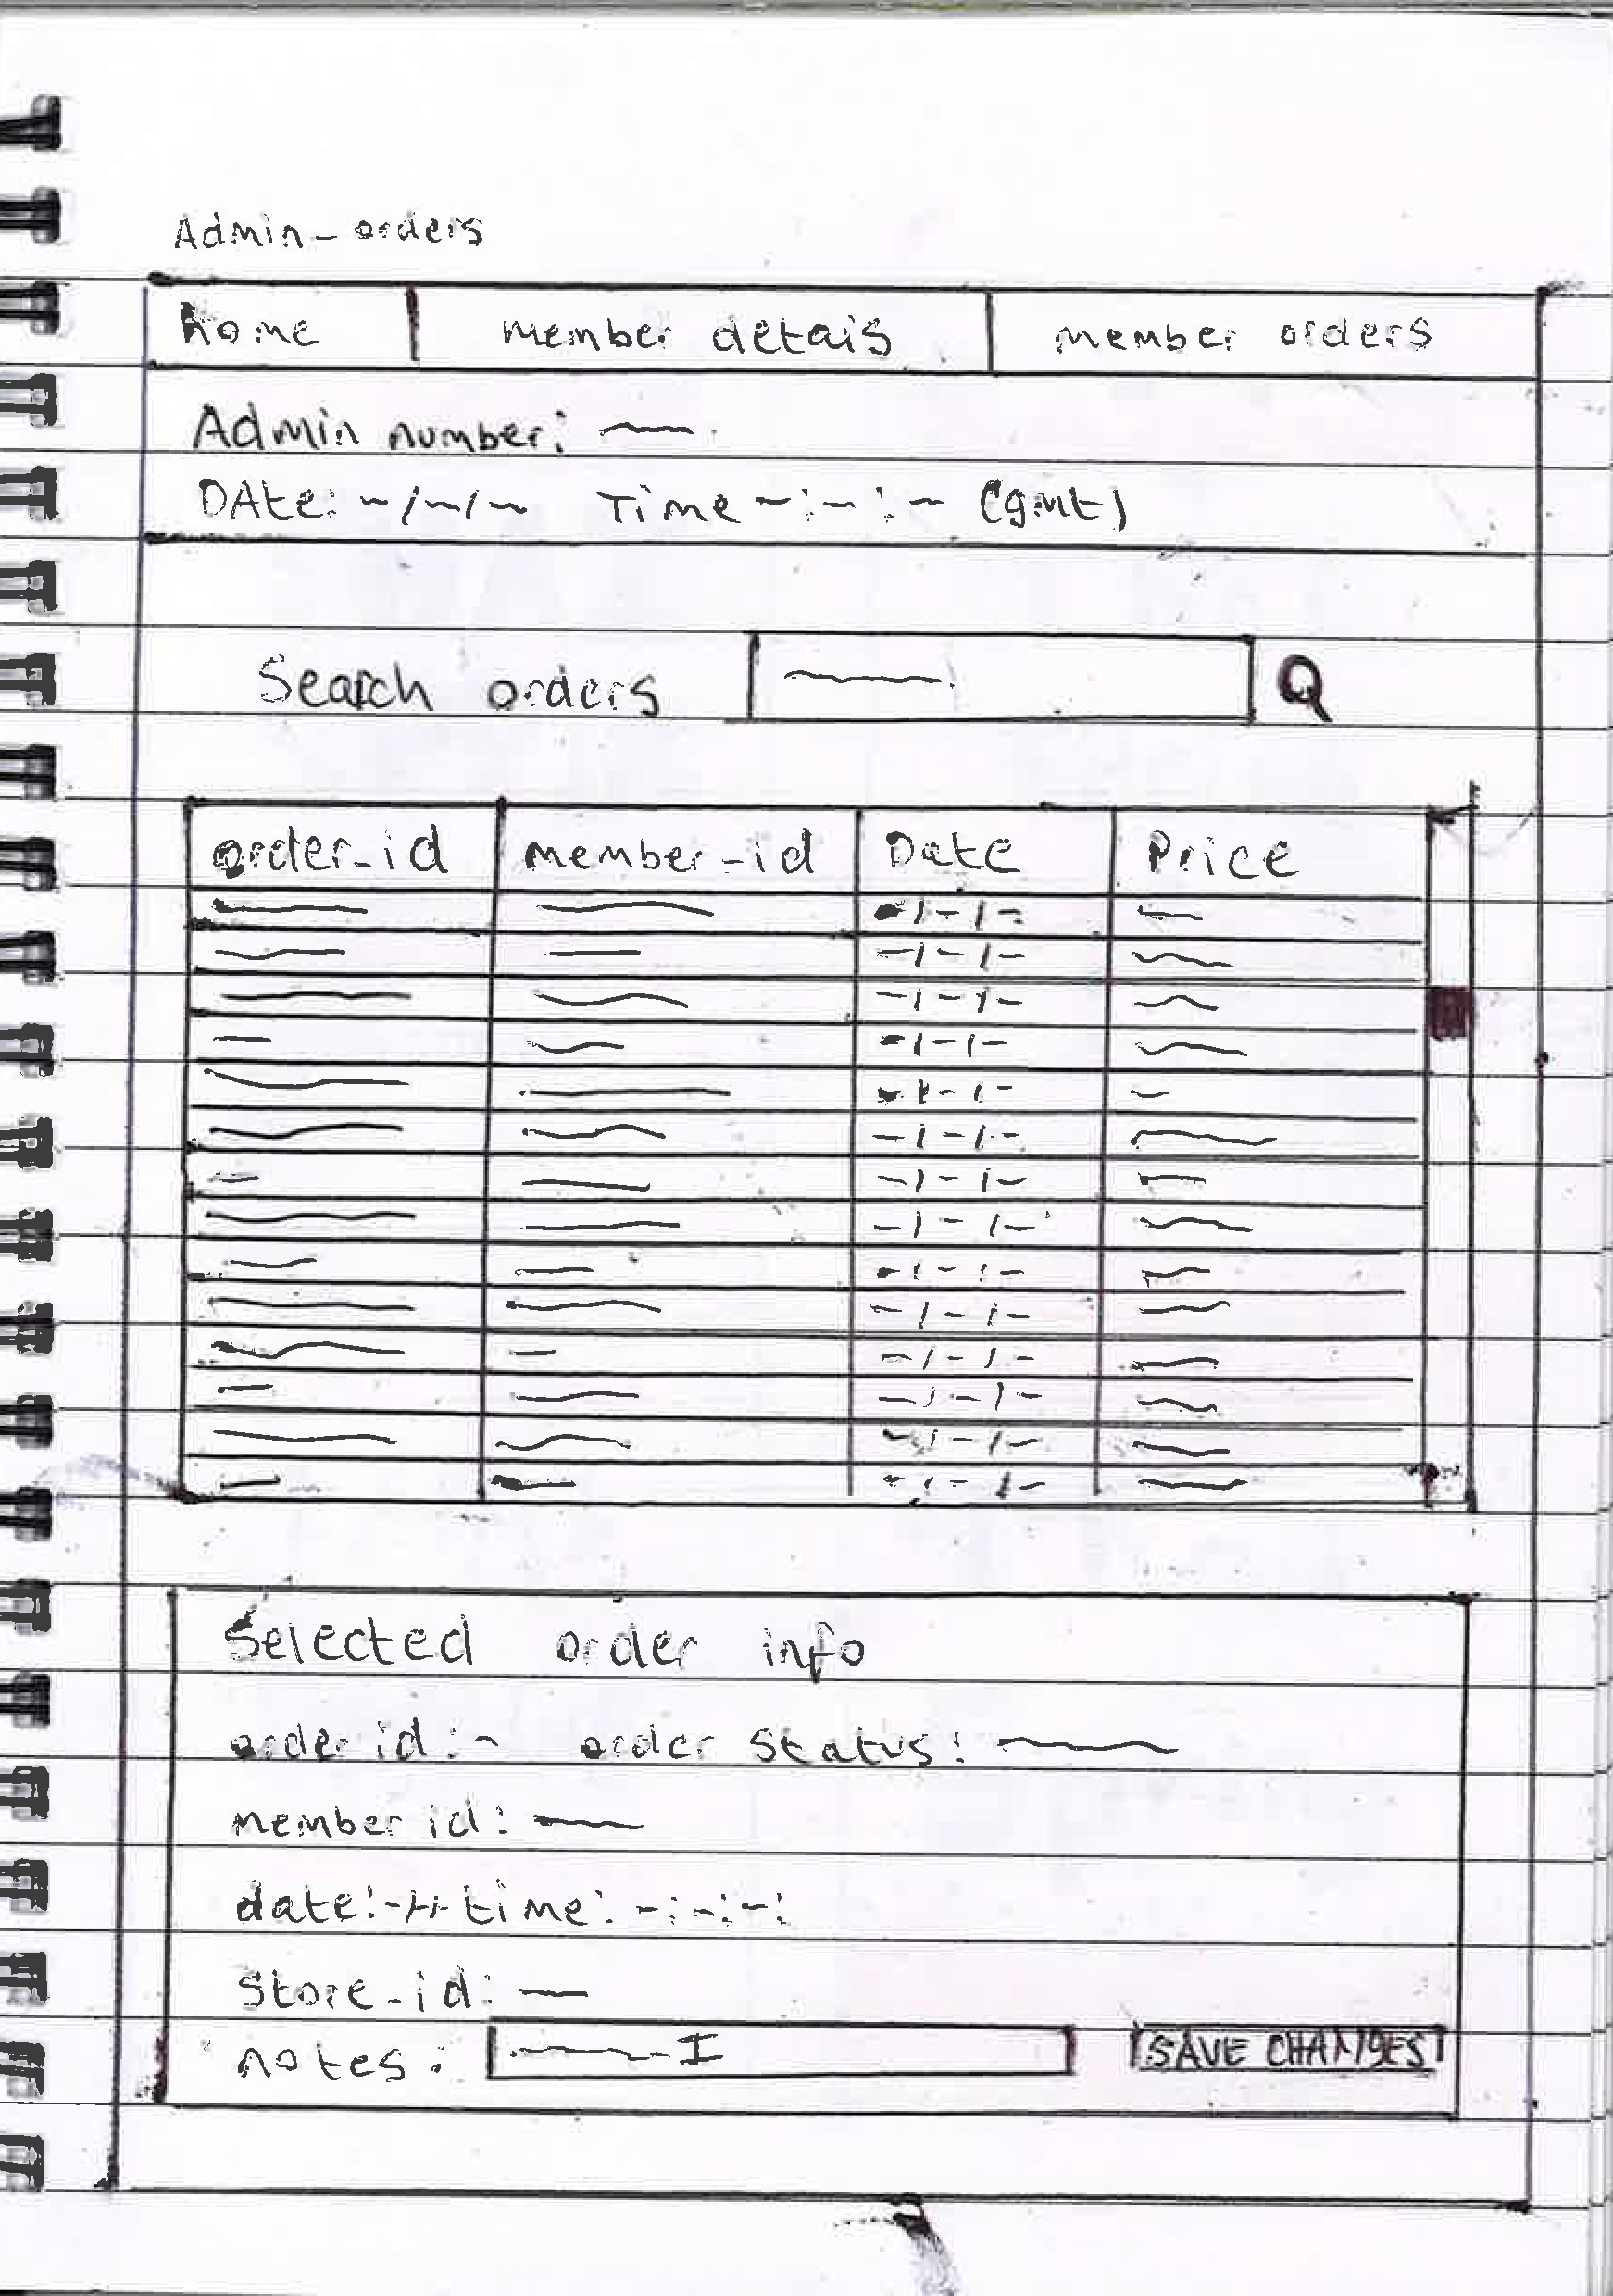 Admin-orders
home member detais member orders
Admin number:
DAte: -/-/- Time -:-:- (gmt)
Search orders
order-id member-id Date Price
-/-/-
-/-/-
-/-/-
-/-/-
-/-/-
-/-/-
-/-/-
-/-/-
-/-/-
-/-/-
-/-/-
-/-/-
-/-/-
-/-/-
Selected order info
order id: - order status:
member id:
date: -/-/- time: -:-:-:
Store-id:
notes: SAVE CHANGES